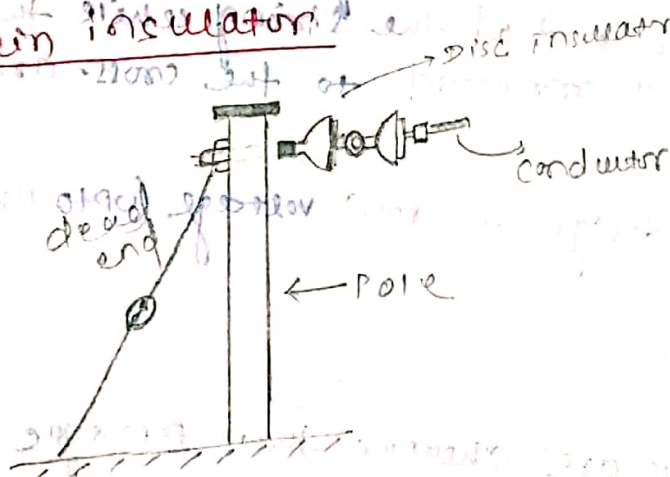 in insulator
Disc insulator
conductor
dead
end
Pole